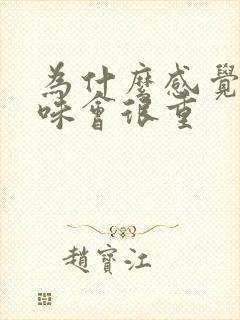 為什麼感覺
味會很重
趙寶江